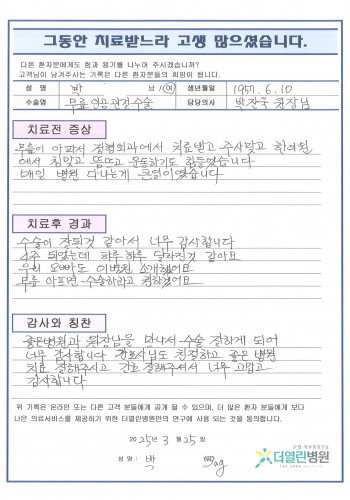 그동안 치료받느라 고생 많으셨습니다.
다른 환자분에게도 힘과 용기를 나누어 주시겠습니까?
고객님이 남겨주시는 기록은 다른 환자분들의 희망이 됩니다.
성 명 박 남 / 여 생년월일 1951. 6. 10
수술명 무릎 인공관절수술 담당의사 박 원장님
치료전 증상
무릎이 아파서 정형외과에서 치료받고 주사맞고 한의원
에서 침맞고 뜸뜨고 운동하기도 힘들었습니다
매일 병원 다니는게 큰일이였습니다
치료후 경과
수술이 잘된것 같아서 너무 감사합니다
4주 되었는데 하루하루 달라진것 같아요
우리 오빠도 이병원 소개했어요
무릎 아프면 수술하라고 권하겠어요
감사와 칭찬
좋은병원과 원장님을 만나서 수술 잘하게 되어
너무 감사합니다 간호사님도 친절하고 좋은 병원
치료 잘해주시고 간호 잘해주셔서 너무 고맙고
감사합니다
위 기록은 온라인 또는 다른 고객 분들에게 공개 될 수 있으며, 더 많은 환자 분들에게 보다
나은 의료서비스를 제공하기 위한 더열린병원만의 연구에 사용 되는 것을 동의합니다.
2025년 3월 25일
성 명 : 박
더열린병원